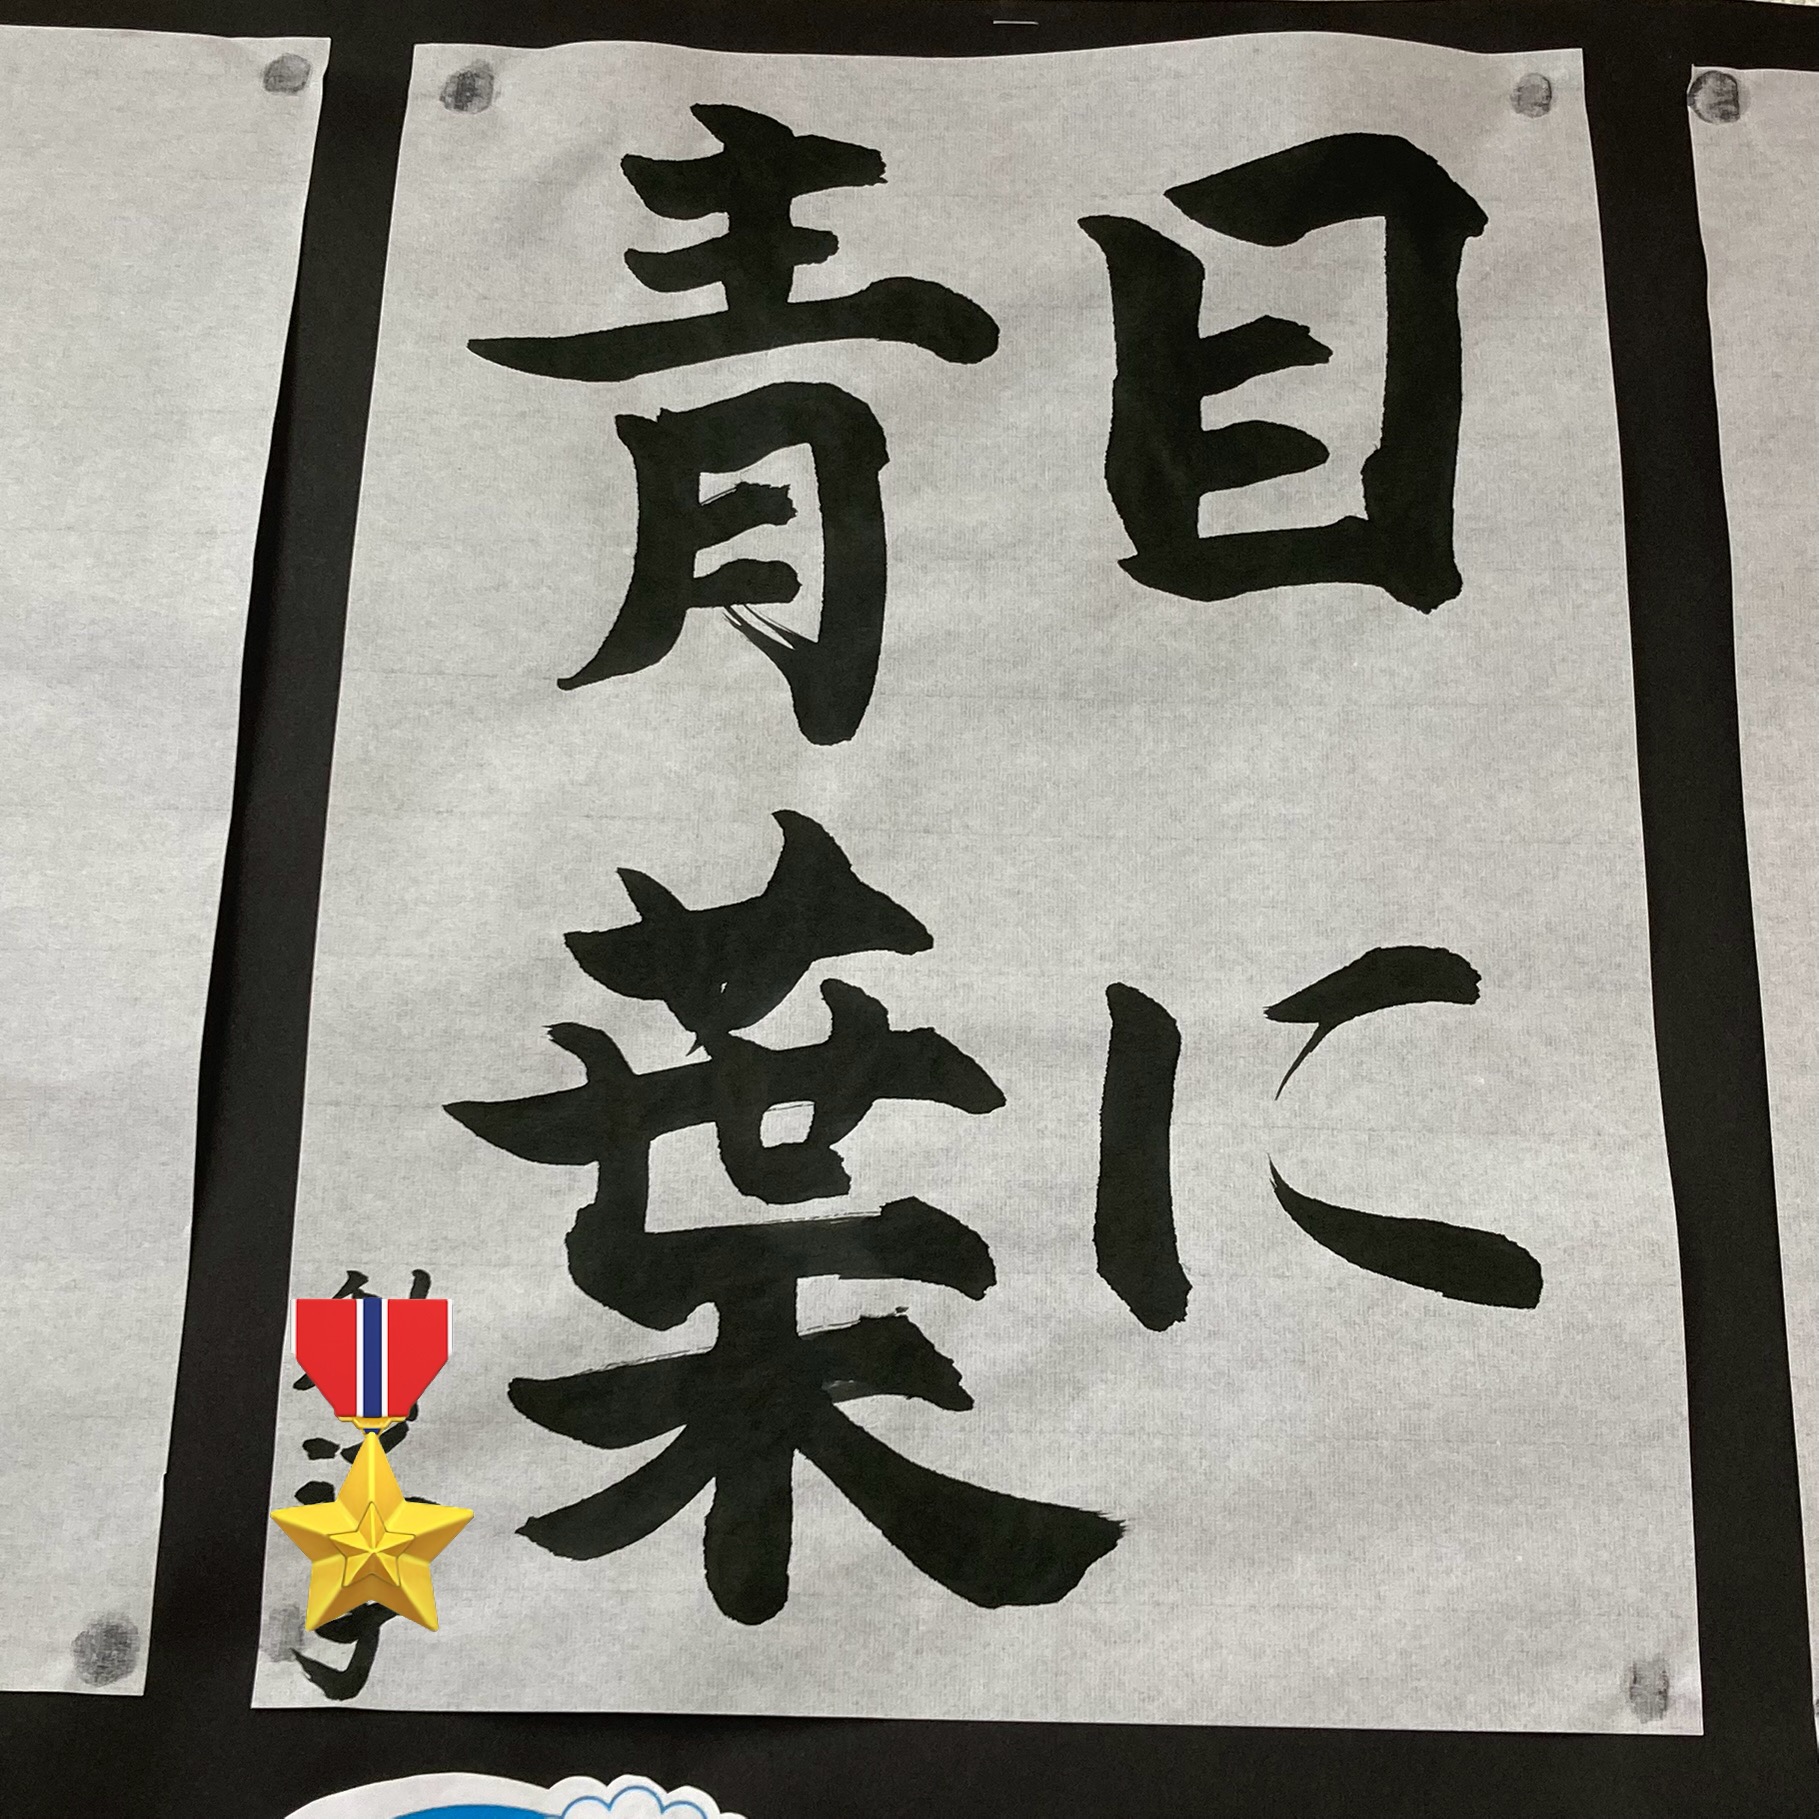 目に
青葉